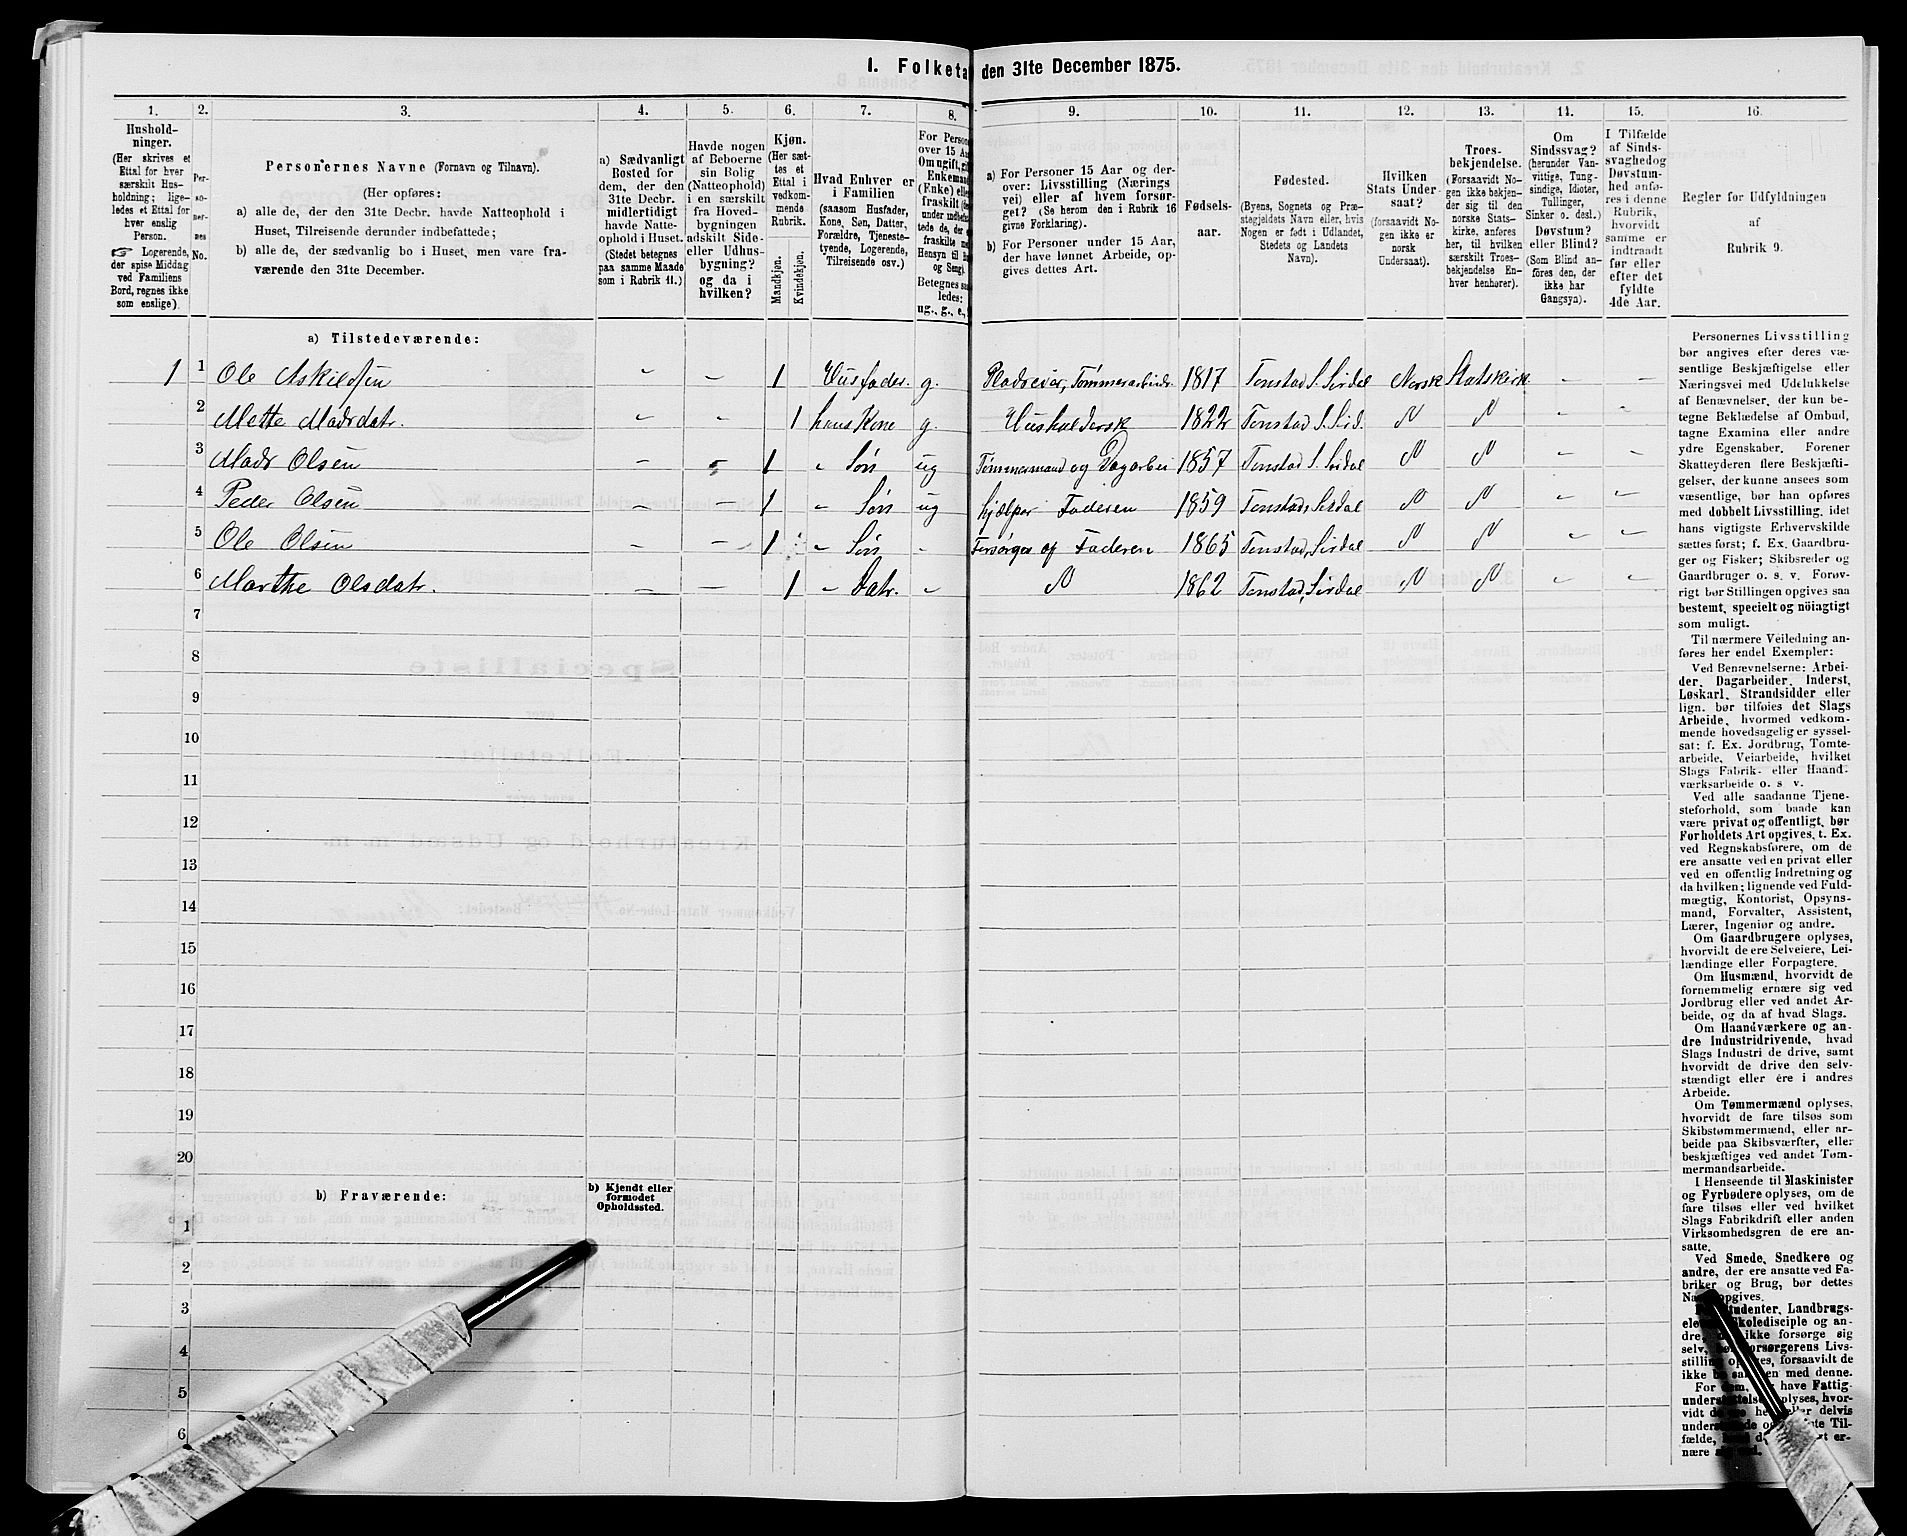 1. Folketal den 31te December 1875.
1. 2. 3. 4. 5. 6. 7. 8. 9. 10. 11. 12. 13. 14. 15. 16.
Hushold-
ninger.
(Her skrives et
Ettal for hver
særskilt Hus-
holdning; lige-
ledes et Ettal for
hver enslig
Person.
Logerende,
der spise Middag
ved Familiens
Bord, regnes ikke
som enslige).
Per-
so-
ner-
nes
No.
Personernes Navne (Fornavn og Tilnavn).
(Her opføres:
a) alle de, der den 31te Decbr. havde Natteophold i
Huset, Tilreisende derunder indbefattede;
b) alle de, der sædvanlig bo i Huset, men vare fra-
værende den 31te December.
a) Sædvanligt
Bosted for
dem, der den
31te Decbr.
midlertidigt
havde Natte-
ophold i Huset.
(Stedet betegnes
paa samme Maade
som i Rubrik 11.)
Havde nogen
af Beboerne
sin Bolig
(Natteophold)
i en særskilt
fra Hoved-
bygningen
adskilt Side-
eller Udhus-
bygning?
og da i
hvilken?
Kjøn.
(Her sæt-
tes et
Ettal i
vedkom-
mende
Rubrik.
Mandkjøn.
Kvindekjøn.
Hvad Enhver er
i Familien
(saasom Husfader,
Kone, Søn, Datter,
Forældre, Tjeneste-
tyende, Logerende,
Tilreisende osv.)
For Person
over 15 Aa
Om ugift, gi
Enkemand
(Enke) elle
fraskilt (de
under indbefa
tede de, der e
fraskilte me
Hensyn til B
og Seng).
Betegnes saa
ledes:
ug., g., e., f
a) For Personer 15 Aar og der-
over: Livsstilling (Nærings
vei) eller af hvem forsør-
get? (Se herom den i Rubrik 16
givne Forklaring).
b) For Personer under 15 Aar,
der have lønnet Arbeide, op-
gives dettes Art.
Fødsels-
aar.
Fødested.
(Byens, Sognets og Præ-
stegjeldets Navn eller, hvis
Nogen er født i Udlandet,
Stedets og Landets
Navn).
Hvilken
Stats Under-
saat?
(forsaavidt No-
gen ikke er
norsk
Undersaat).
Troes-
bekjendelse.
(Forsaavidt No-
gen ikke bekjen-
der sig til den
norske Stats-
kirke, anføres
her, til hvilken
særskilt Troes-
bekjendelse En-
hver henhører).
Om
Sindssvag?
(herunder Van-
vittige, Tung-
sindige, Idioter,
Tullinger,
Sinker o. desl.)
Døvstum?
eller Blind?
(Som Blind an-
føres den, der
ikke har
Gangsyn).
I Tilfælde
af Sinds-
svaghedog
Døvstum-
hed anfø-
res i denne
Rubrik,
hvorvidt
samme er
indtraadt
før eller
efter det
fyldte
4de Aar.
Regler for Udfyldningen
af
Rubrik 9.
a) Tilstedeværende:
1 1 Ole Askildsen - - 1 Husfader. g. Pladseier, Tømmerarbeide 1817 Tonstad S. Sirdal Norsk Statskirk. - -
2 Mette Madsdatr. - - 1 hans Kone g. Husholdersk 1822 Tonstad S. Sird. N N - -
3 Mads Olsen - - 1 " Søn ug Tømmermand og Dagarbei 1857 Tonstad S. Sirdal N N - -
4 Peder Olsen - - 1 " Søn ug hjælper Faderen 1859 Tonstad, Sirdal N N - -
5 Ole Olsen - - 1 " Søn - Forsørges af Faderen 1865 Tonstad, Sirdal N N - -
6 Marthe Olsdatr. - - 1 " Datr. - N 1862 Tonstad, Sirdal N N - -
7
8
9
10
11
12
13
14
15
16
17
18
19
20
b) Fraværende:
b) Kjendt eller
formodet
Opholdssted.
1
2
3
4
5
6
Personernes Livsstilling
bør angives efter deres væ-
sentlige Beskjæftigelse eller
Næringsvei med Udelukkelse
af Benævnelser, der kun be-
tegne Beklædelse af Ombud,
tagne Examina eller andre
ydre Egenskaber. Forener
Skatteyderen flere Beskjæfti-
gelser, der kunne ansees som
væsentlige, bør han opføres
med dobbelt Livsstilling, idet
hans vigtigste Erhvervskilde
sættes først; f. Ex. Gaardbru-
ger og Fisker; Skibsreder og
Gaardbruger o. s. v. Forøv-
rigt bør Stillingen opgives saa
bestemt, specielt og nöiagtigt
som muligt.
Til nærmere Veiledning an-
føres her endel Exempler:
Ved Benævnelserne: Arbei-
der, Dagarbeider, Inderst,
Løskarl, Strandsidder eller
lign. bør tilføies det Slags
Arbeide, hvormed vedkom-
mende hovedsagelig er syssel-
sat; f. Ex. Jordbrug, Tomte-
arbeide, Veiarbeide, hvilket
Slags Fabrik- eller Haand-
værksarbeide o. s. v.
Ved alle saadanne Tjene-
steforhold, som baade kan
være privat og offentligt, bør
Forholdets Art opgives, t. Ex.
ved Regnskabsførere, om de
ere ansatte ved en privat eller
ved en offentlig Indretning og
da hvilken; lignende ved Fuld-
mægtig, Kontorist, Opsyns-
mand, Forvalter, Assistent,
Lærer, Ingeniør og andre.
Om Gaardbrugere oplyses,
hvorvidt de ere Selveiere, Lei-
lændinge eller Forpagtere.
Om Husmænd, hvorvidt de
fornemmelig ernære sig ved
Jordbrug eller ved andet Ar-
beide, og da af hvad Slags.
Om Haandværkere og an-
dre Industridrivende, hvad
Slags Industri de drive, samt
hvorvidt de drive den selv-
stændigt eller ere i andres
Arbeide.
Om Tømmermænd oplyses,
hvorvidt de fare tilsøs som
Skibstømmermænd, eller ar-
beide paa Skibsværfter, eller
beskjæftiges ved andet Tøm-
mermandsarbeide.
I Henseende til Maskinister
og Fyrbødere oplyses, om de
fare tilsøs eller ved hvilket
Slags Fabrikdrift eller anden
Virksomhedsgren de ere an-
satte.
Ved Smede, Snedkere og
andre, der ere ansatte ved Fa-
briker og Brug, bør dettes
opgives.
Studenter, Landbrugs-
Skoledisciple og an-
dre, ikke forsørge sig
selv, Forsørgerens Livs-
stilling forsaavidt de
ikke sammen med denne.
For have Fattig-
understøttelse oplyses, hvor-
vidt de eller delvis
Til-
fælde,
nære